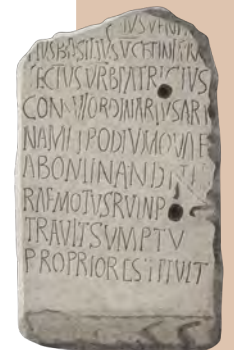 TIVSBASILIVSVCETINLPRAE
FECTVSVRBIPATRICIVS
CONSVLORDINARIVSARE
NAMETPODIVMQVAE
ABOMINANDITE
RAEMOTVSRVINPROS
TRAVITSVMPTV
PROPRIORESTITVIT